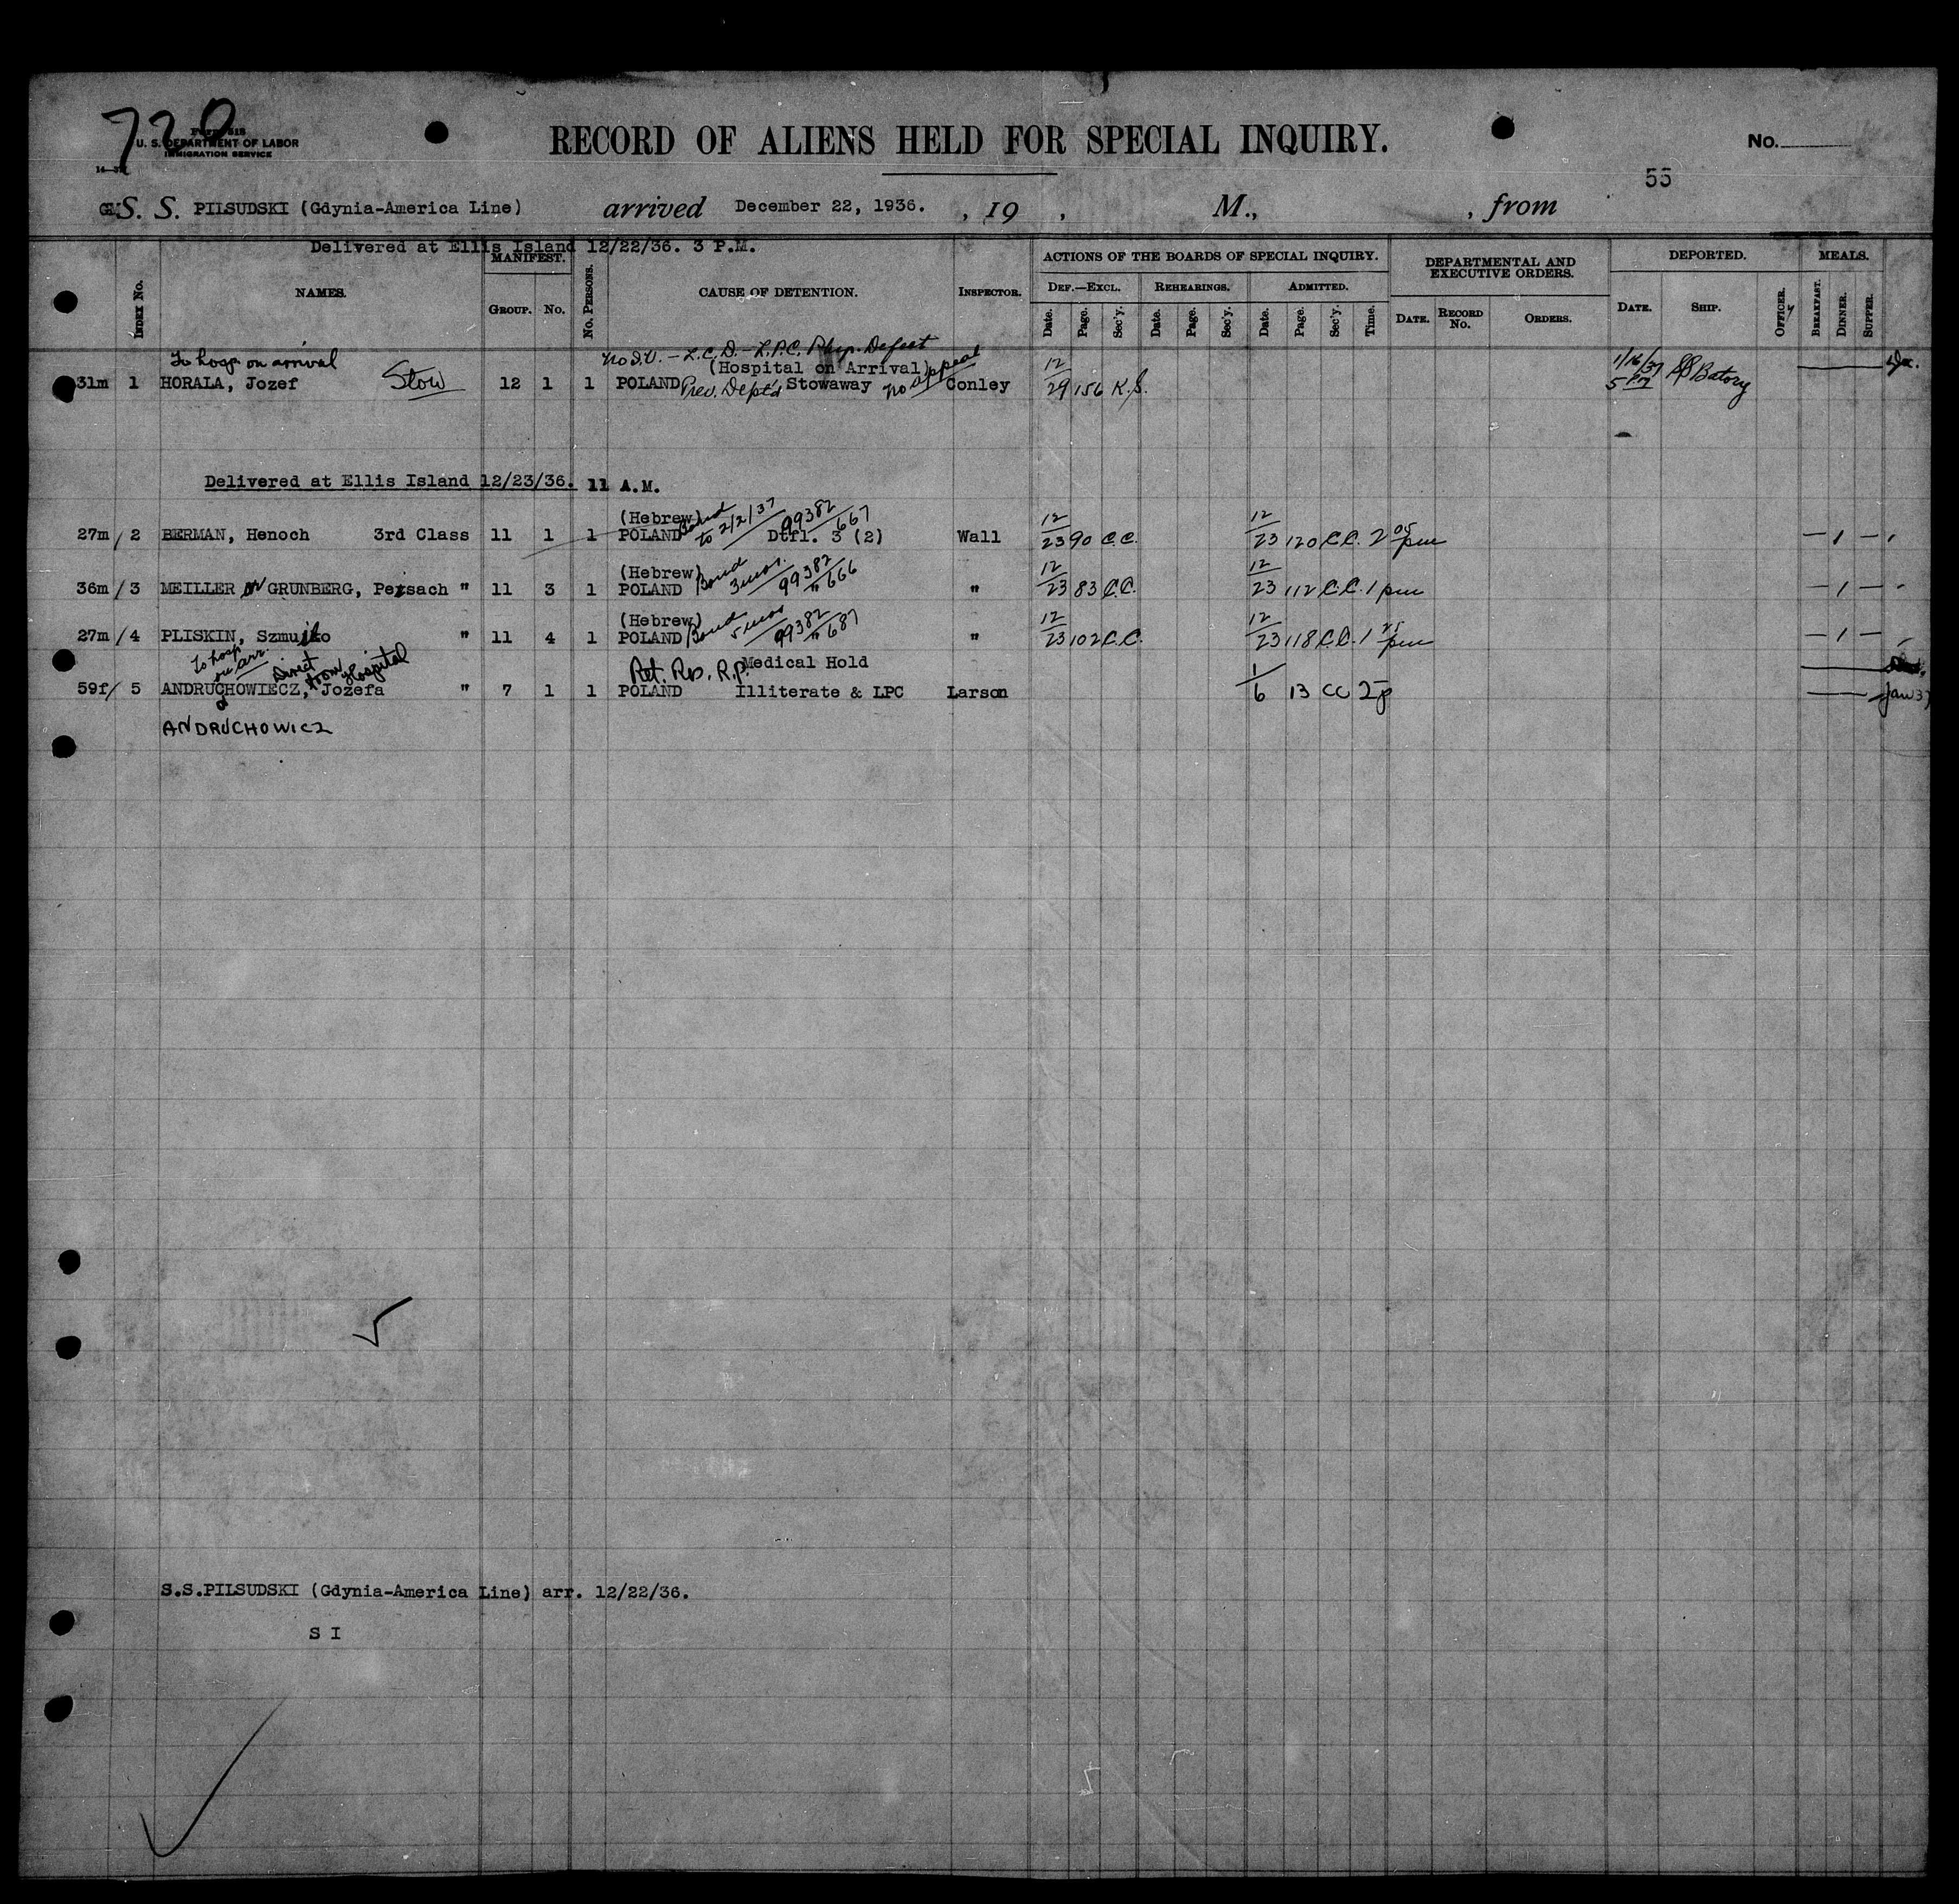 720
Form 518
U. S. DEPARTMENT OF LABOR
IMMIGRATION SERVICE
RECORD OF ALIENS HELD FOR SPECIAL INQUIRY.
No.
55
S. S. PILSUDSKI (Gdynia-America Line) arrived December 22, 1936. , 19 , M., , from
Delivered at Ellis Island 12/22/36. 3 P.M.
INDEX No. NAMES. MANIFEST. GROUP. No. No. PERSONS. CAUSE OF DETENTION. INSPECTOR. ACTIONS OF THE BOARDS OF SPECIAL INQUIRY. DEPARTMENTAL AND EXECUTIVE ORDERS. DEPORTED. MEALS.
DEF.—EXCL. REHEARINGS. ADMITTED.
Date. Page. Sec'y. Date. Page. Sec'y. Date. Page. Sec'y. Time. DATE. RECORD No. ORDERS. DATE. SHIP. OFFICER. BREAKFAST. DINNER. SUPPER.
To hosp on arrival no I.V. - L.C.D. - L.P.C. Phys. Defect
(Hospital on Arrival) no appeal
31m 1 HORALA, Jozef Stow 12 1 1 POLAND Prev. Dept'd Stowaway Conley 12/29 156 K.S. 1/16/37 5 PM SS Batory
Delivered at Ellis Island 12/23/36. 11 A.M.
(Hebrew) Bond to 2/2/37 99382/667
27m/ 2 BERMAN, Henoch 3rd Class 11 1 1 POLAND Dtfl. 3 (2) Wall 12/23 90 C.C. 12/23 120 C.C. 2 05 pm — 1 —
(Hebrew) Bond 3 mos. 99382/" 666
36m/ 3 MEILLER or GRUNBERG, Peisach " 11 3 1 POLAND " 12/23 83 C.C. 12/23 112 C.C. 1 pm — 1 —
(Hebrew) Bond 5 mos 99382/" 687
27m/ 4 PLISKIN, Szmujlo " 11 4 1 POLAND " 12/23 102 C.C. 12/23 118 C.C. 1 25 pm — 1 —
To hosp on arr. Direct from Hospital Ret. Res. R.P. Medical Hold
59f/ 5 ANDRUCHOWIECZ, Jozefa " 7 1 1 POLAND Illiterate & LPC Larson 1/6 13 CC 2p Jan 37
or
ANDRUCHOWICZ
S.S.PILSUDSKI (Gdynia-America Line) arr. 12/22/36.
S I